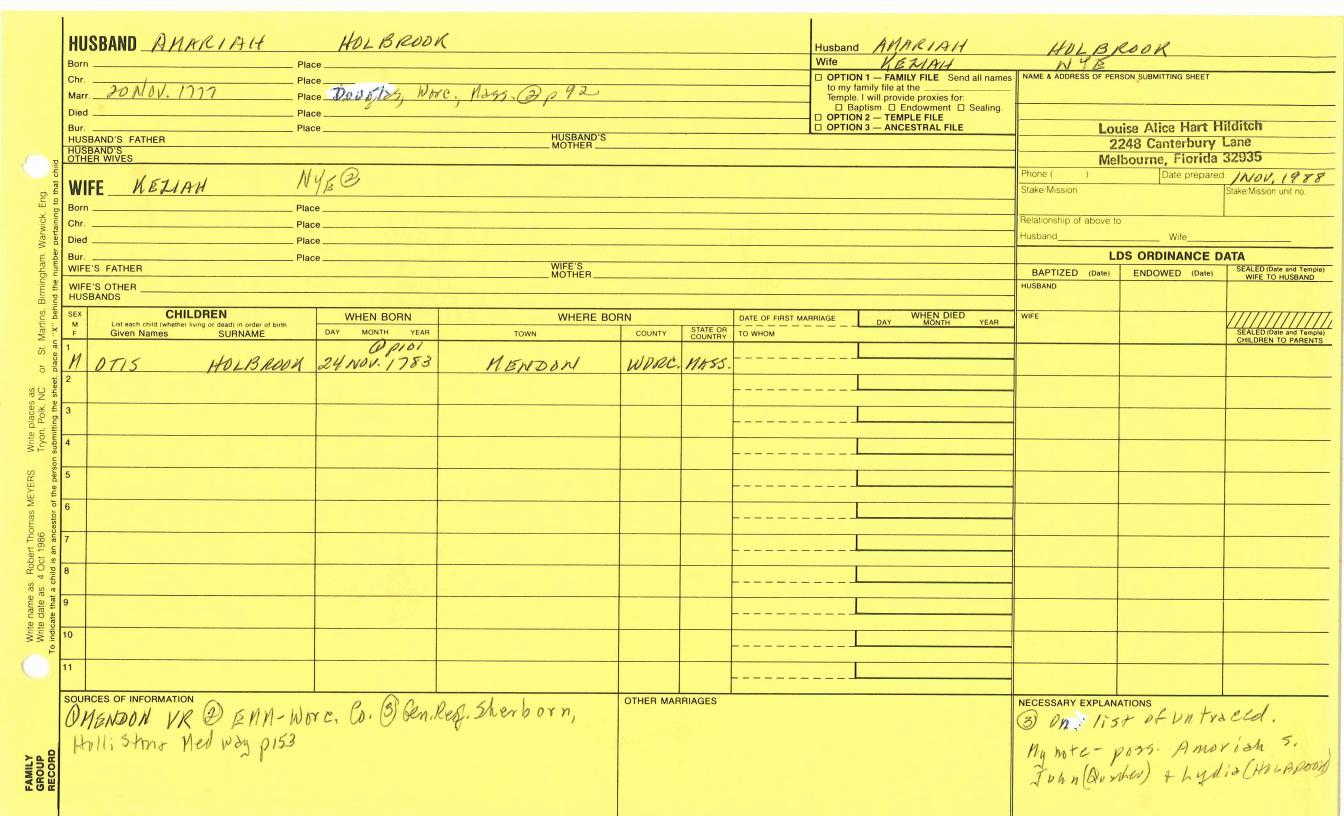 HUSBAND AMARIAH HOLBROOK
Born Place
Chr. Place
Marr. 20 NOV. 1777 Place Douglas, Worc, Mass. ② p 92
Died Place
Bur. Place
HUSBAND'S FATHER HUSBAND'S MOTHER
HUSBAND'S OTHER WIVES
WIFE KEZIAH NYE ②
Born Place
Chr. Place
Died Place
Bur. Place
WIFE'S FATHER WIFE'S MOTHER
WIFE'S OTHER HUSBANDS
Husband AMARIAH HOLBROOK
Wife KEZIAH NYE
☐ OPTION 1 — FAMILY FILE Send all names
to my family file at the
Temple. I will provide proxies for:
☐ Baptism ☐ Endowment ☐ Sealing.
☐ OPTION 2 — TEMPLE FILE
☐ OPTION 3 — ANCESTRAL FILE
NAME & ADDRESS OF PERSON SUBMITTING SHEET
Louise Alice Hart Hilditch
2248 Canterbury Lane
Melbourne, Florida 32935
Phone ( ) Date prepared 1 NOV. 1988
Stake/Mission Stake/Mission unit no.
Relationship of above to
Husband Wife
LDS ORDINANCE DATA
BAPTIZED (Date) ENDOWED (Date) SEALED (Date and Temple) WIFE TO HUSBAND
HUSBAND
WIFE
SEALED (Date and Temple) CHILDREN TO PARENTS
SEX M F
CHILDREN
List each child (whether living or dead) in order of birth
Given Names SURNAME
WHEN BORN
DAY MONTH YEAR
WHERE BORN
TOWN COUNTY STATE OR COUNTRY
DATE OF FIRST MARRIAGE
TO WHOM
WHEN DIED
DAY MONTH YEAR
① p101
1 M OTIS HOLBROOK 24 NOV. 1783 MENDON WORC. MASS.
2
3
4
5
6
7
8
9
10
11
SOURCES OF INFORMATION
① MENDON VR ② EMM-Worc. Co. ③ Gen. Reg. Sherborn,
Holliston & Medway p153
OTHER MARRIAGES
NECESSARY EXPLANATIONS
③ On list of untraced.
My note - poss. Amariah s.
John (Quaker) + Lydia (HOLBROOK)
Write name as: Robert Thomas MEYERS Write places as: Tryon, Polk, NC or St. Martins, Birmingham, Warwick, Eng
Write date as: 4 Oct 1986
To indicate that a child is an ancestor of the person submitting the sheet, place an "X" behind the number pertaining to that child
FAMILY GROUP RECORD